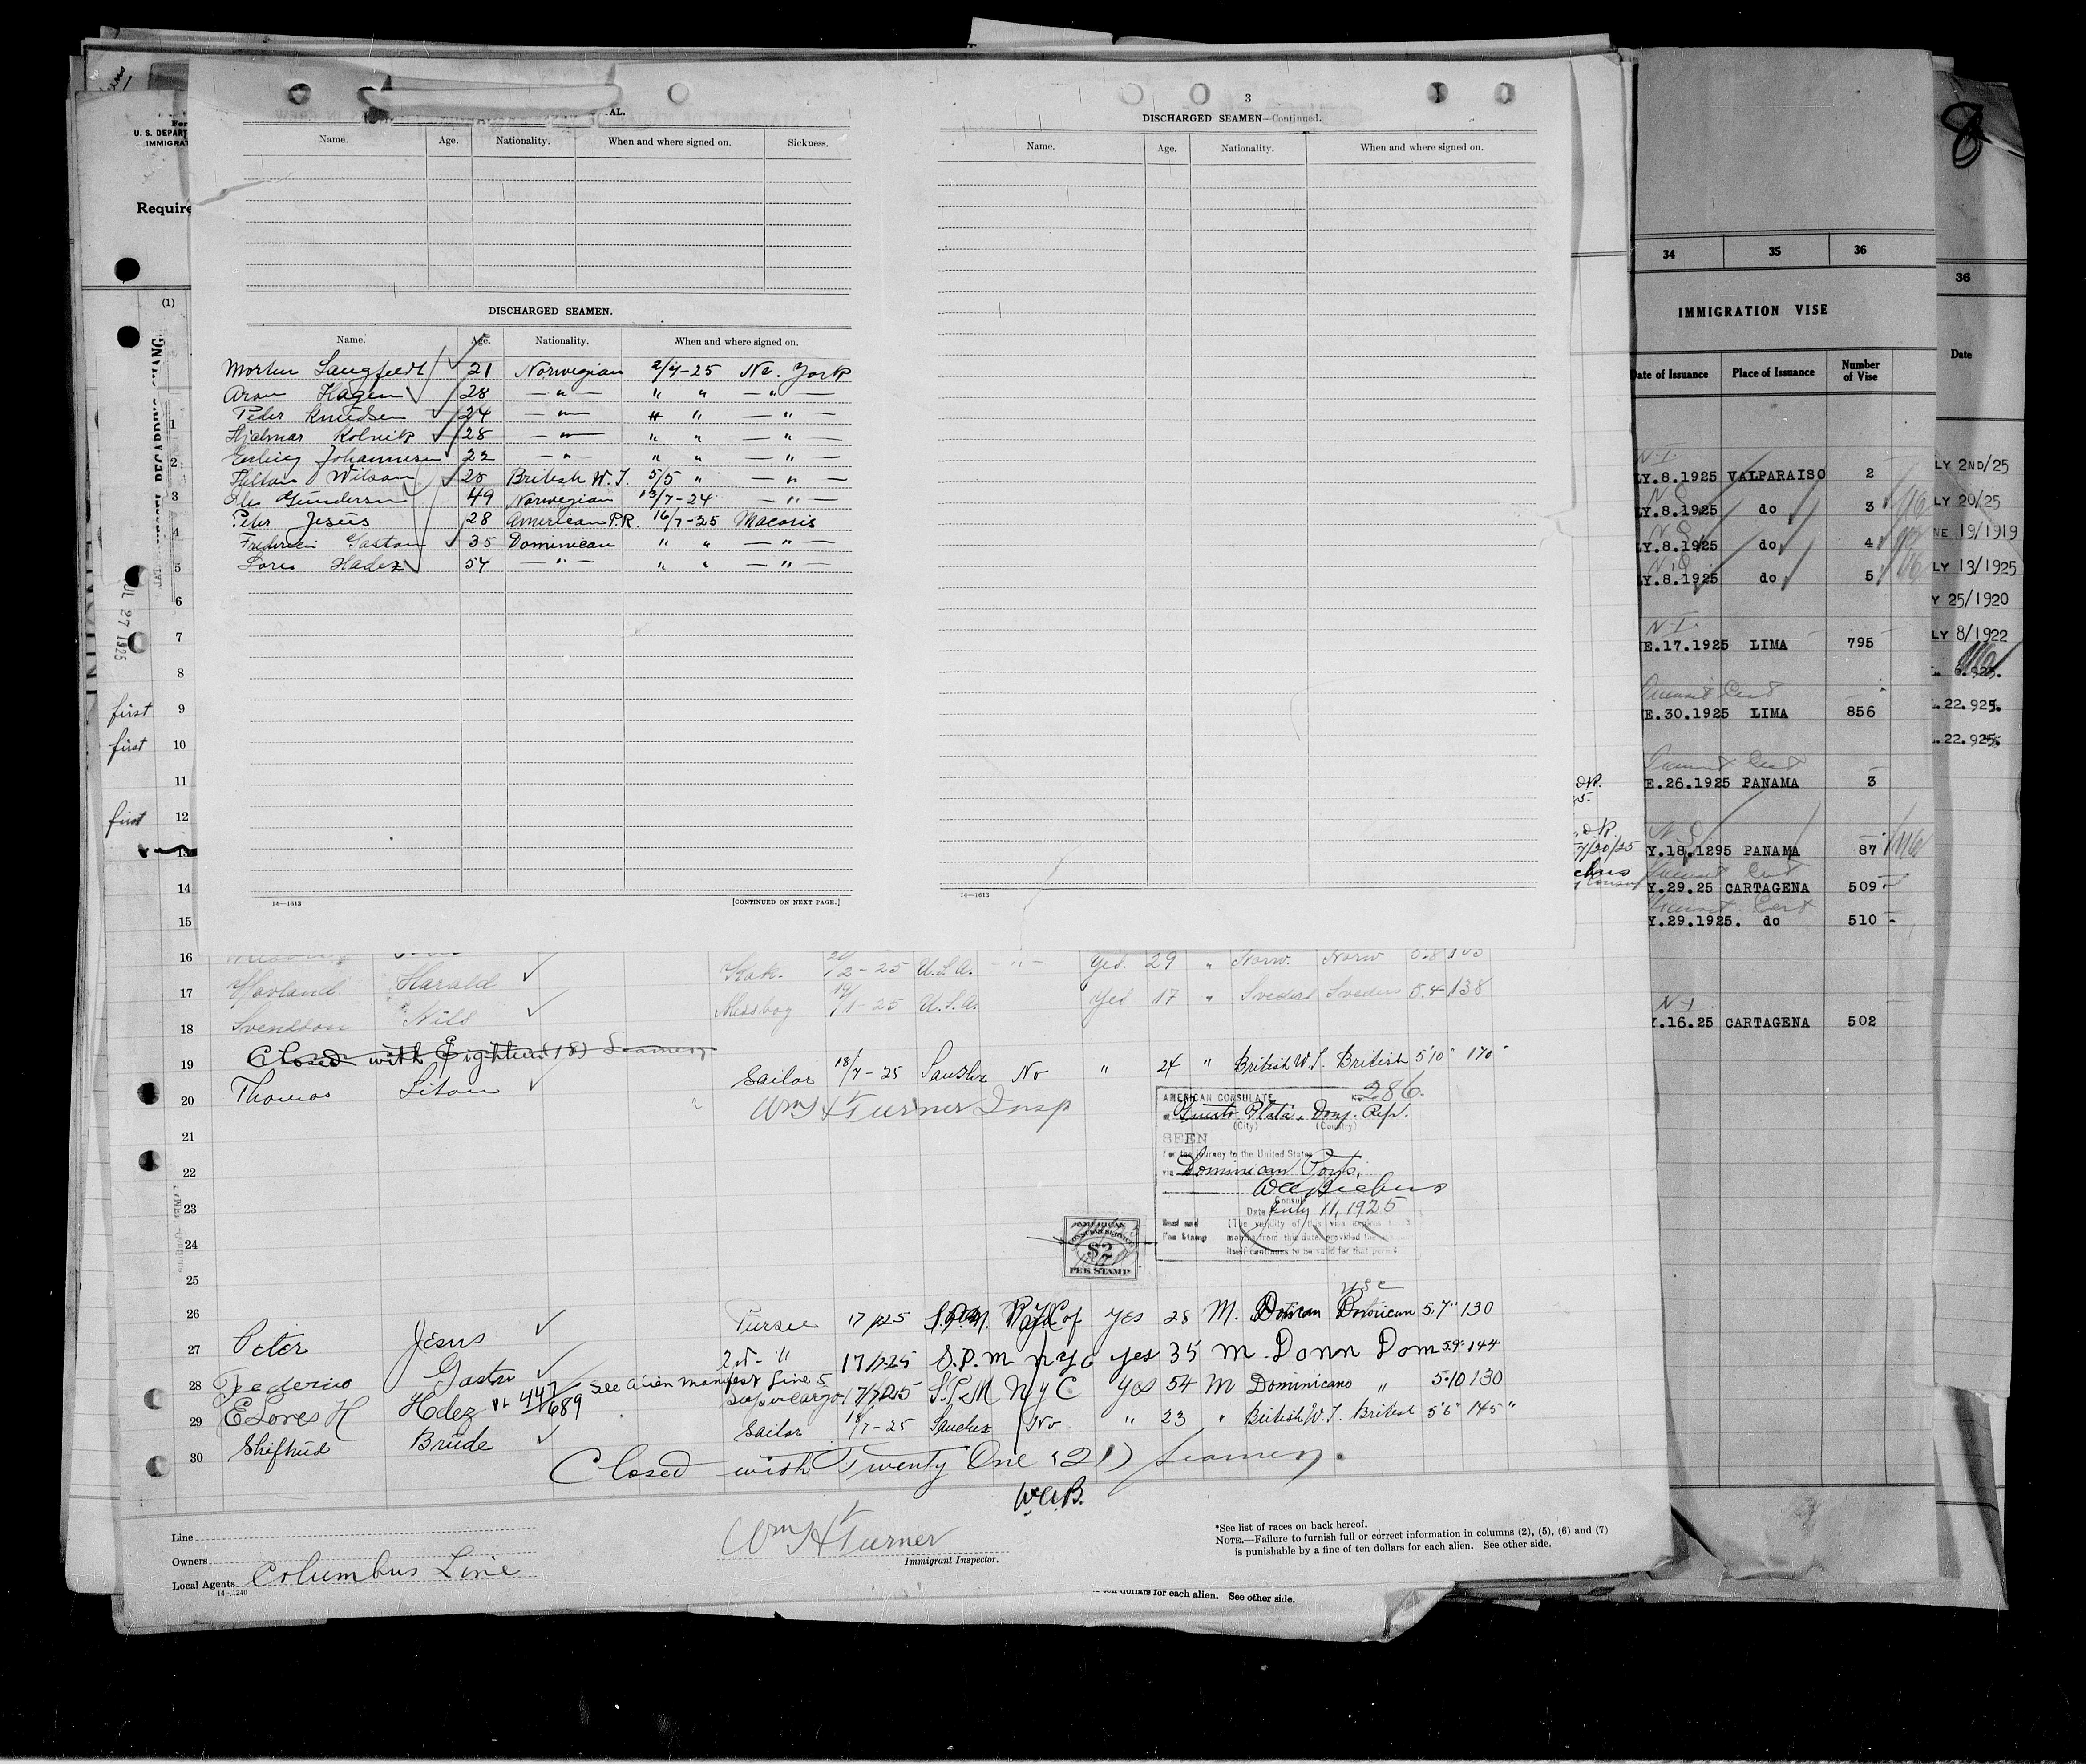 3
AL.
Name. Age. Nationality. When and where signed on. Sickness.
DISCHARGED SEAMEN.
Name. Age. Nationality. When and where signed on.
Langfeldt 21 Norwegian 2/7-25 Ne. York
Hagen 28 — " — " " — " —
Peder Knudsen 24 — " — " " — " —
Hjalmar Kolvik 28 — " — " " — " —
Erling Johannesen 22 — " — " " — " —
Wilson 25 British W.I. 5/5 " — " —
Gundersen 49 Norwegian 13/7-24 — " —
Peter Jesus 28 American P.R. 16/7-25 Macoris
Gaston 35 Dominican " " — " —
Lores Hadez 54 — " — " " — " —
14—1613
[CONTINUED ON NEXT PAGE.]
DISCHARGED SEAMEN—Continued.
Name. Age. Nationality. When and where signed on.
14—1613
For
U. S. DEPART
IMMIGRAT
Require
(1)
JUL 27 1925
1
2
3
4
5
6
7
8
first 9
first 10
11
first 12
13
14
15
16
Havland Harald 2-25 U.S.A. — " — Yes 29 " Norw. Norw
17
Svendson Nils Messboy 19/1-25 U.S.A. Yes 17 " Swedish Sweden 5.4 138
18
Closed with Eighteen (18) Seamen
19
Thomas Liton Sailor 18/7-25 Sanchez No " 24 " British W.I. British 5'10" 170"
20
Wm H Turner Insp
AMERICAN CONSULATE No. 286.
at Puerto Plata, Dom. Rep.
(City) (Country)
SEEN
for the journey to the United States
via Dominican Ports.
Consul
Date July 11, 1925
Seal and
Fee Stamp
AMERICAN
$2
FEE STAMP
21
22
23
24
25
26
USC
Peter Jesus 17/7-25 Yes 28 M. Dominican 5.7" 130
27
Federico Gaston 2nd " 17/7-25 S.P.M NYC yes 35 M Domn Dom 5.9" 144
28
See alien manifest Line 5
E Lores H Hdez 447/689 Supercargo 17/7-25 S.P.M NYC Yes 54 M Dominicano " 5.10 130
29
Brude Sailor 18/7-25 Sanchez No " 23 " British W.I. British 5'6" 145"
30
Closed with Twenty One (21) Seamen.
W.A.B.
Line
Owners
Local Agents Columbus Line
14—1240
Wm H Turner
Immigrant Inspector.
*See list of races on back hereof.
NOTE.—Failure to furnish full or correct information in columns (2), (5), (6) and (7)
is punishable by a fine of ten dollars for each alien. See other side.
ten dollars for each alien. See other side.
7/20/25
34 35 36
IMMIGRATION VISE
Date of Issuance Place of Issuance Number of Vise
N.I.
LY.8.1925 VALPARAISO 2
LY.8.1925 do 3
LY.8.1925 do 4
LY.8.1925 do 5
N-I.
E.17.1925 LIMA 795
Transit Cert
E.30.1925 LIMA 856
Transit Cert
E.26.1925 PANAMA 3
Y.18.1295 PANAMA 87
Transit Cert
Y.29.25 CARTAGENA 509
Transit Cert
Y.29.1925. do 510
N-I
Y.16.25 CARTAGENA 502
8
36
Date
LY 2ND/25
LY 20/25
NE 19/1919
LY 13/1925
Y 25/1920
LY 8/1922
6.925.
.22.925.
.22.925.